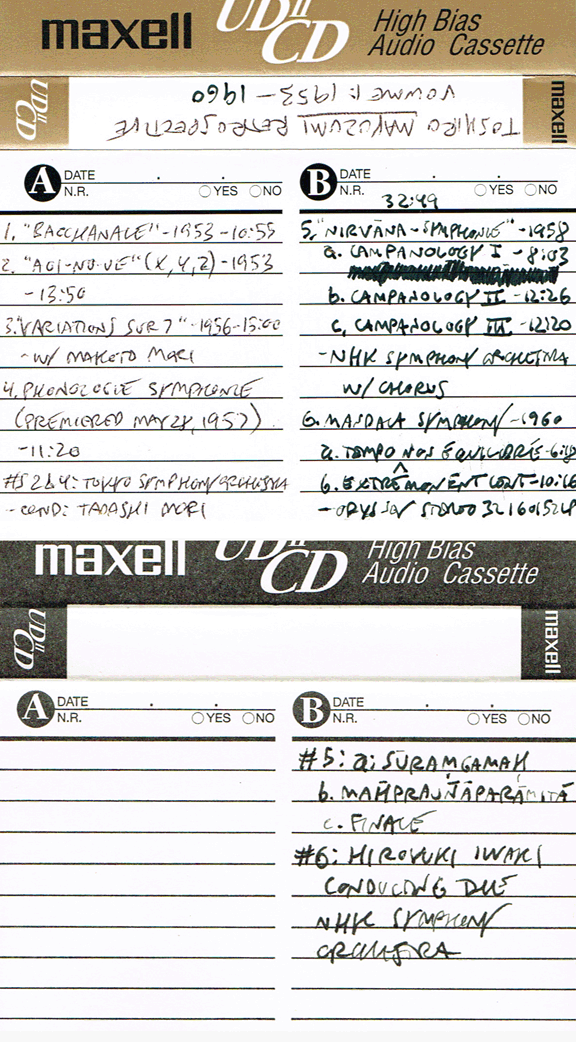 maxell UDII CD High Bias Audio Cassette
UDII CD
TOSHIRO MAYUZUMI RETROSPECTIVE
VOLUME 1: 1953-1960
maxell
A DATE . .
N.R. YES NO
1. "BACCHANALE" - 1953 - 10:55
2. "AOI-NO-UE" (X, Y, Z) - 1953
- 13:50
3. "VARIATIONS SUR 7" - 1956 - 15:00
- W/ MAKOTO MORI
4. PHONOLOGIE SYMPHONIE
(PREMIERED MAY 28, 1957)
- 11:20
#S 2 & 4: TOKYO SYMPHONY ORCHESTRA
- COND: TADASHI MORI
B DATE . .
N.R. YES NO
32:49
5. "NIRVĀNA-SYMPHONIE" - 1958
a. CAMPANOLOGY I - 8:03
b. CAMPANOLOGY II - 12:26
c. CAMPANOLOGY III - 12:20
- NHK SYMPHONY ORCHESTRA
W/ CHORUS
6. MANDALA SYMPHONY - 1960
a. TEMPO NON ÉQUILIBRÉ -
b. EXTRÊMEMENT LENT -
- ODYSSEY STEREO 32160152
maxell UDII CD High Bias Audio Cassette
UDII CD
maxell
A DATE . .
N.R. YES NO
B DATE . .
N.R. YES NO
#5: a: SŪRAMGAMAH
b. MAHPRAJÑĀPARĀMITĀ
c. FINALE
#6: HIROYUKI IWAKI
CONDUCING DUE
NHK SYMPHONY
ORCHESTRA